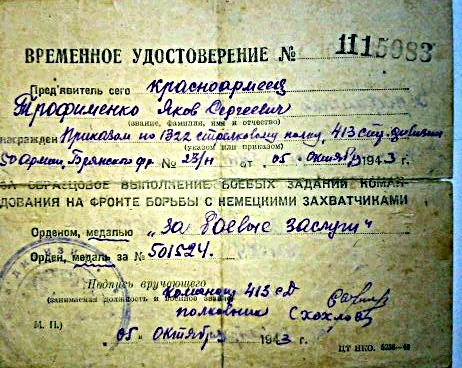 ВРЕМЕННОЕ УДОСТОВЕРЕНИЕ № 1115083
Пред'явитель сего красноармеец
Трофименко Яков Сергеевич
(звание, фамилия, имя и отчество)
награжден Приказом по 1322 стрелковому полку, 413 стр. дивизии
(указом или приказом)
50 Армии, Брянского фр № 23/н от „05" октября 1943 г.
ЗА ОБРАЗЦОВОЕ ВЫПОЛНЕНИЕ БОЕВЫХ ЗАДАНИЙ КОМАН-
ДОВАНИЯ НА ФРОНТЕ БОРЬБЫ С НЕМЕЦКИМИ ЗАХВАТЧИКАМИ
Орденом, медалью „За боевые заслуги"
Орден, медаль за № 501524.
Подпись вручающего
(занимаемая должность и военное звание)
Командир 413 сд
полковник
М. П.)
„05" октября 1943 г.
ЦТ НКО.